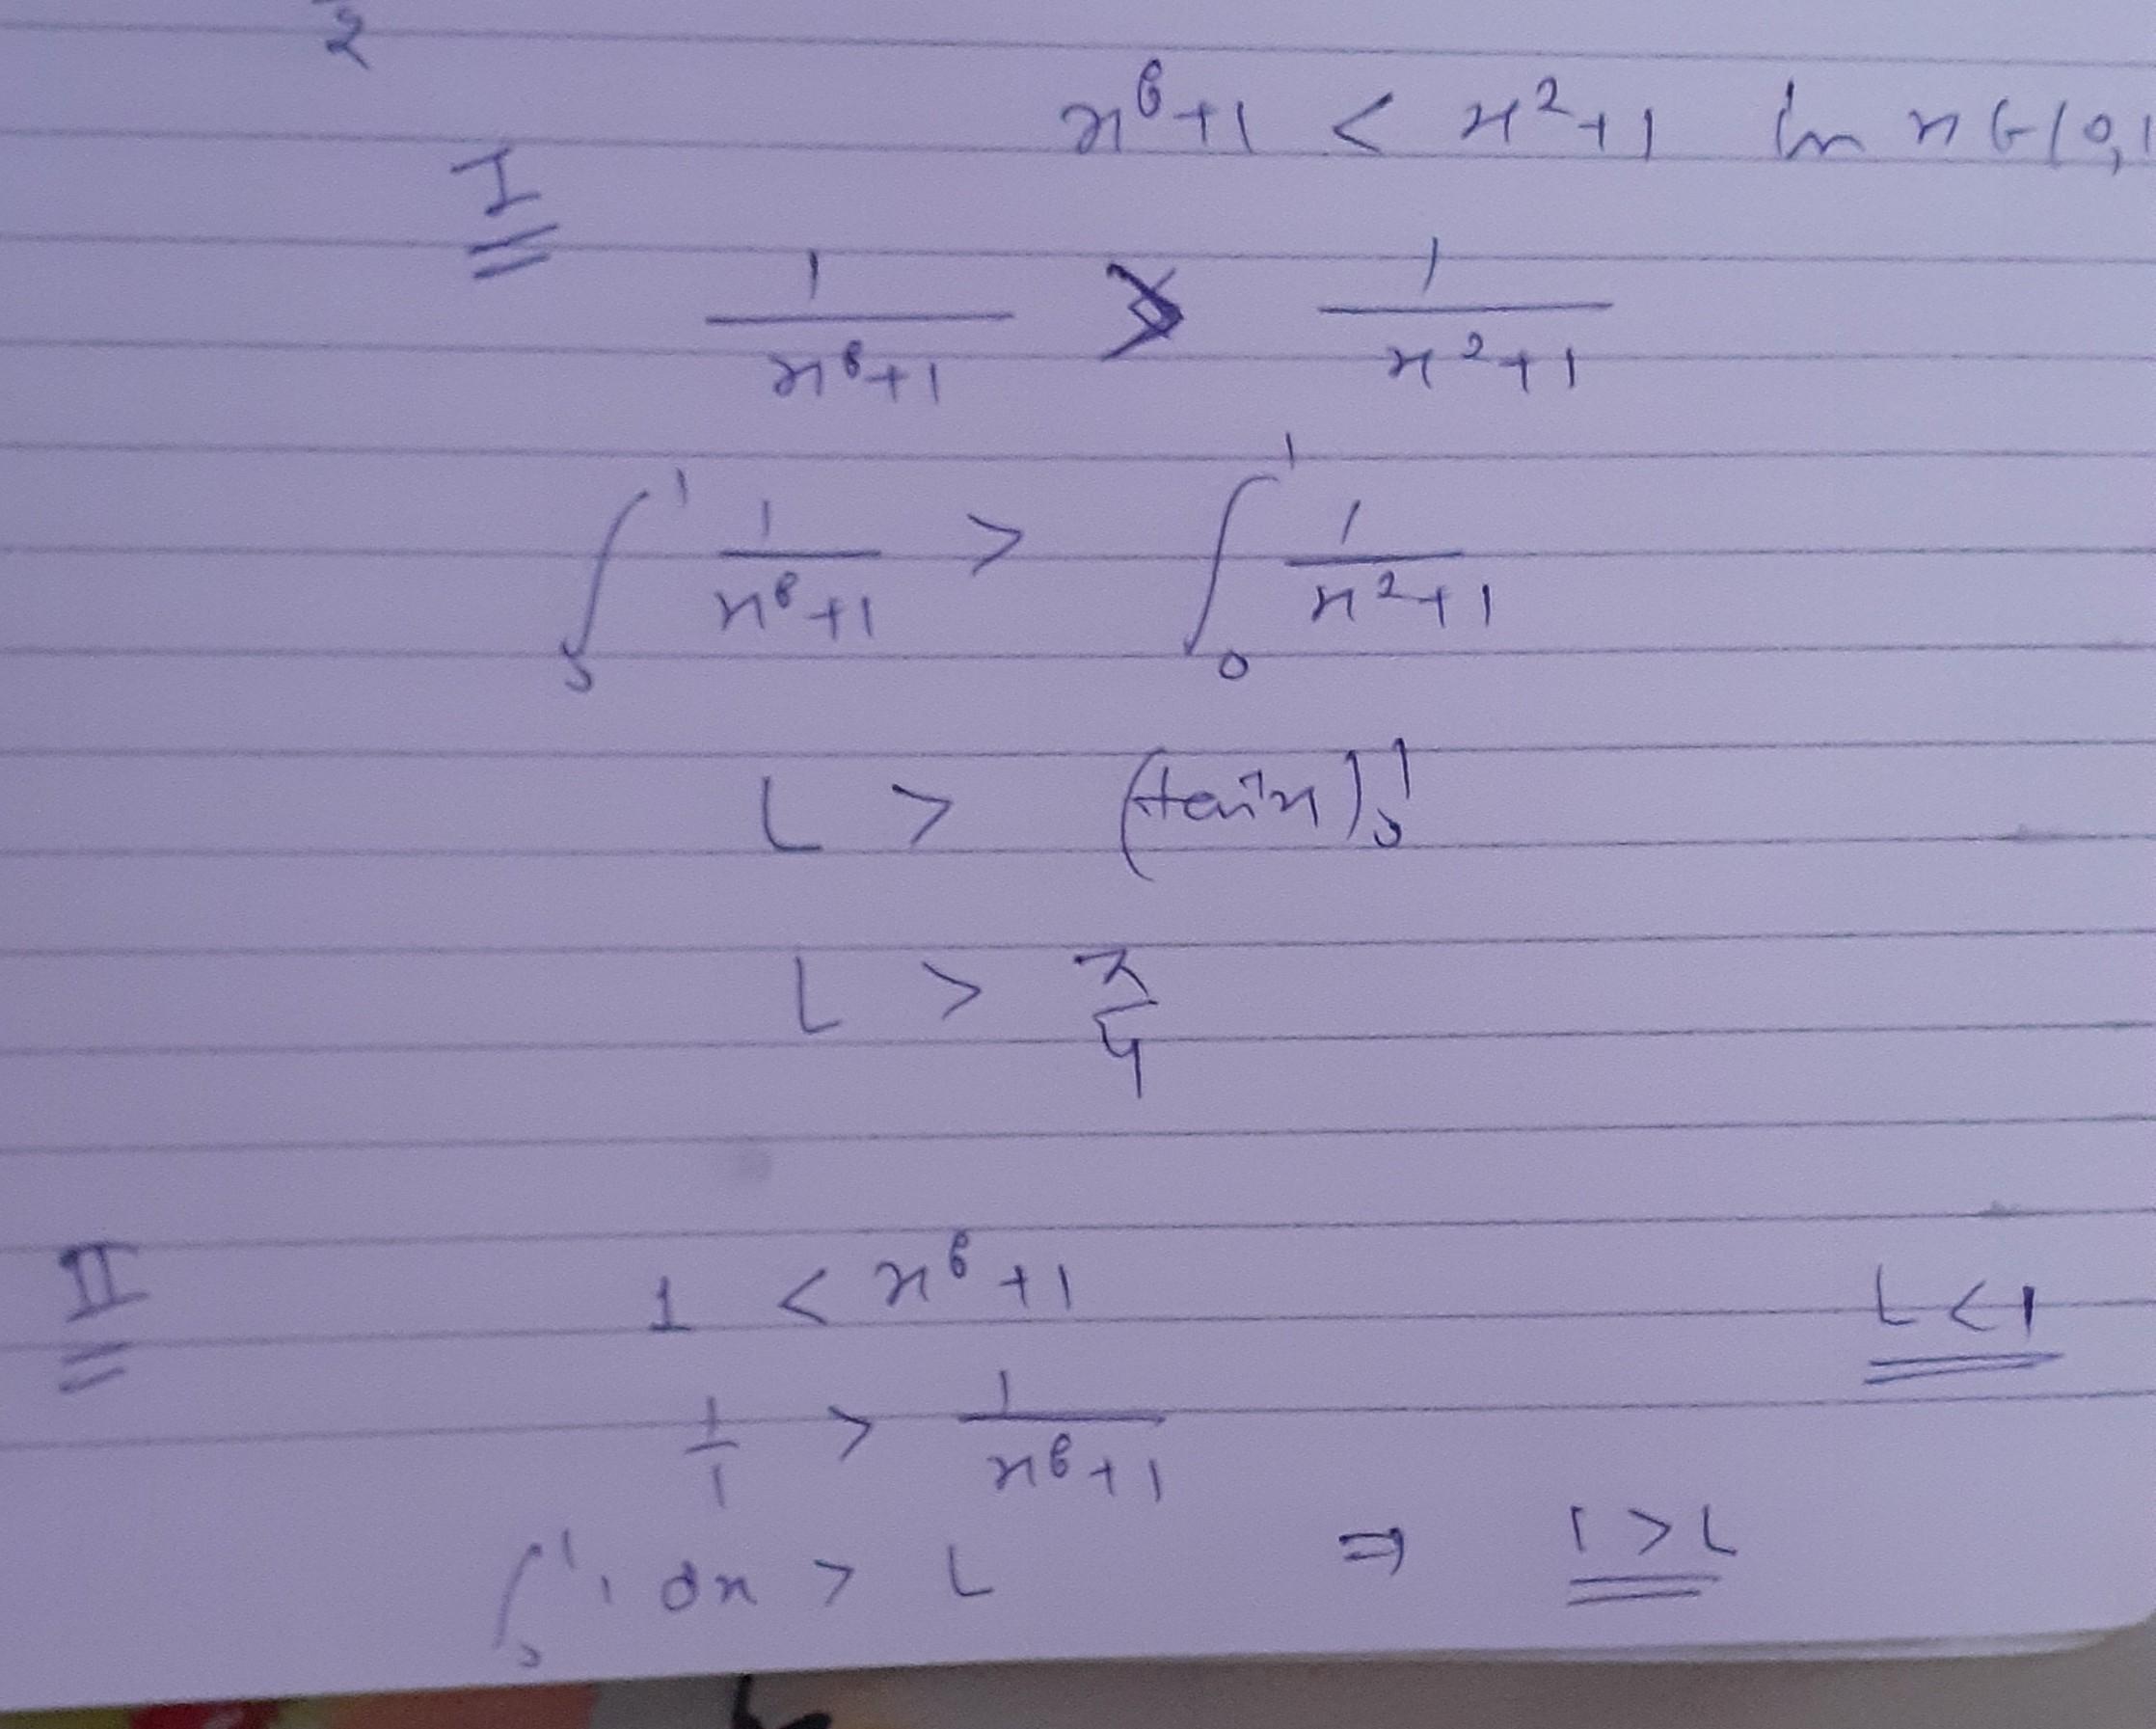 2
x⁶+1 < x²+1 in x ∈ (0,1
I
1/(x⁶+1) > 1/(x²+1)
∫₀¹ 1/(x⁶+1) > ∫₀¹ 1/(x²+1)
L > (tan⁻¹x)₀¹
L > π/4
II 1 < x⁶+1 L<1
1/1 > 1/(x⁶+1)
∫₀¹ 1 dx > L ⇒ 1 > L